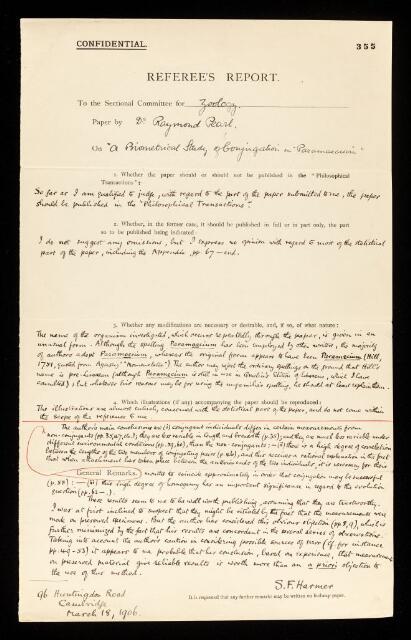 CONFIDENTIAL.
355
REFEREE'S REPORT.
To the Sectional Committee for Zoology.
Paper by Dr Raymond Pearl,
On "A Biometrical Study of Conjugation in Paramaecium"
1. Whether the paper should or should not be published in the "Philosophical
Transactions":
So far as I am qualified to judge, with regard to the part of the paper submitted to me, the paper
should be published in the "Philosophical Transactions".
2. Whether, in the former case, it should be published in full or in part only, the part
so to be published being indicated:
I do not suggest any omissions, but I express no opinion with regard to most of the statistical
part of the paper, including the Appendix, pp 67 – end.
3. Whether any modifications are necessary or desirable, and, if so, of what nature:
The name of the organism investigated, which occurs repeatedly through the paper, is given in an
unusual form. Although the spelling Paramaecium has been employed by other writers, the majority
of authors adopt Paramoecium, whereas the original form appears to have been Paramecium (Hill,
quoted from Agassiz' "Nomenclator"). The author may reject the ordinary spellings on the ground that Hill's
name is pre-Linnean (although Paramecium is still in use in Gmelin's Edition of Linnaeus, which I have
consulted); but whatever his reasons may be for using the spelling, he should at least explain them.
4. Which illustrations (if any) accompanying the paper should be reproduced:
The illustrations are almost entirely concerned with the statistical part of the paper, and do not come within
the scope of the reference to me.
The author's main conclusions are (i) conjugant individuals differ in certain measurements from
non-conjugants; they are less variable in length and breadth (p. 35); and are much less variable under
different environmental conditions, than the non-conjugants; – (ii) there is a high degree of correlation
between the lengths of the two members of conjugating pairs, and this receives a rational explanation in the fact
that when attachment has taken place between the anterior ends of the two individuals, it is necessary for their
General Remarks. mouths to coincide approximately in order that conjugation may be successful
(p. 58); – (iii) this high degree of homogamy has an important significance in regard to the evolution
question (pp. 62 – ).
These results seem to me to be well worth publishing, assuming that they are trustworthy.
I was at first inclined to suspect that they might be vitiated by the fact that the measurements were
made on preserved specimens. But the author has considered this obvious objection (pp 8, 9), which is
further minimised by the fact that his results are concordant in the several series of observations.
Taking into account the author's caution in considering possible sources of error (cf for instance,
pp. 49–53) it appears to me probable that his conclusion, based on experience, that measurements
on preserved material give reliable results is worth more than an a priori objection to
the use of this method.
S. F. Harmer
It is requested that any further remarks may be written on foolscap paper.
96 Huntingdon Road
Cambridge
March 18, 1906.